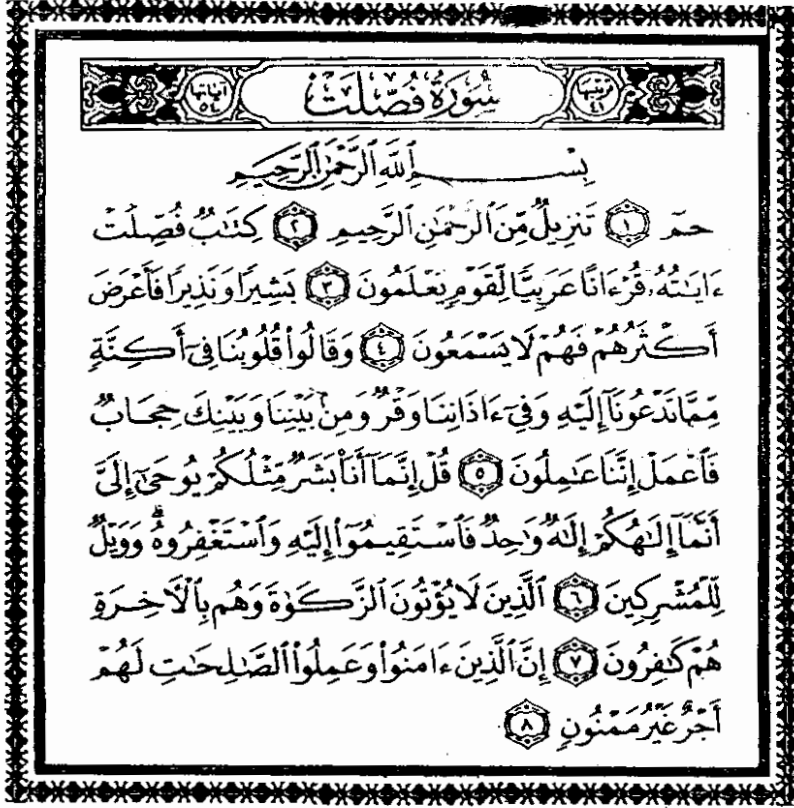 ترتيبها ٤١ سُورَةُ فُصِّلَتْ آياتها ٥٤
بِسْمِ ٱللَّهِ ٱلرَّحْمَٰنِ ٱلرَّحِيمِ
حمٓ ١ تَنزِيلٌ مِّنَ ٱلرَّحْمَٰنِ ٱلرَّحِيمِ ٢ كِتَٰبٌ فُصِّلَتْ
ءَايَٰتُهُۥ قُرْءَانًا عَرَبِيًّا لِّقَوْمٍ يَعْلَمُونَ ٣ بَشِيرًا وَنَذِيرًا فَأَعْرَضَ
أَكْثَرُهُمْ فَهُمْ لَا يَسْمَعُونَ ٤ وَقَالُوا۟ قُلُوبُنَا فِىٓ أَكِنَّةٍ
مِّمَّا تَدْعُونَآ إِلَيْهِ وَفِىٓ ءَاذَانِنَا وَقْرٌ وَمِنۢ بَيْنِنَا وَبَيْنِكَ حِجَابٌ
فَٱعْمَلْ إِنَّنَا عَٰمِلُونَ ٥ قُلْ إِنَّمَآ أَنَا۠ بَشَرٌ مِّثْلُكُمْ يُوحَىٰٓ إِلَىَّ
أَنَّمَآ إِلَٰهُكُمْ إِلَٰهٌ وَٰحِدٌ فَٱسْتَقِيمُوٓا۟ إِلَيْهِ وَٱسْتَغْفِرُوهُ ۗ وَوَيْلٌ
لِّلْمُشْرِكِينَ ٦ ٱلَّذِينَ لَا يُؤْتُونَ ٱلزَّكَوٰةَ وَهُم بِٱلْءَاخِرَةِ
هُمْ كَٰفِرُونَ ٧ إِنَّ ٱلَّذِينَ ءَامَنُوا۟ وَعَمِلُوا۟ ٱلصَّٰلِحَٰتِ لَهُمْ
أَجْرٌ غَيْرُ مَمْنُونٍ ٨